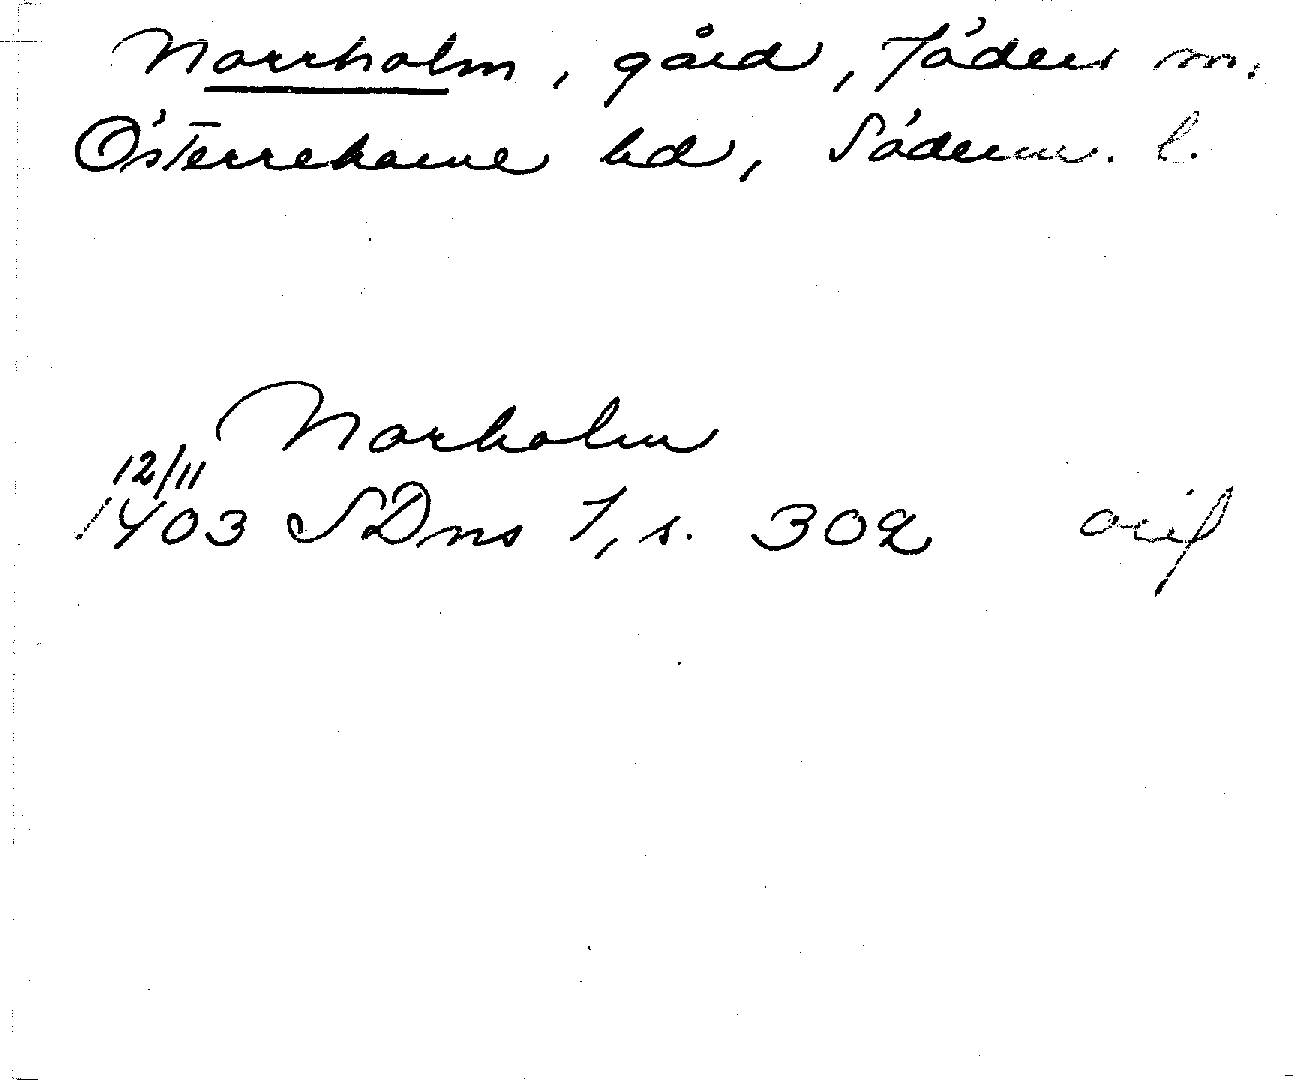 Norrholm, gård, Jäders sn.
Österrekarne hd, Söderm. l.
Norholm
12/11
1403 SDns 1, s. 302 orig